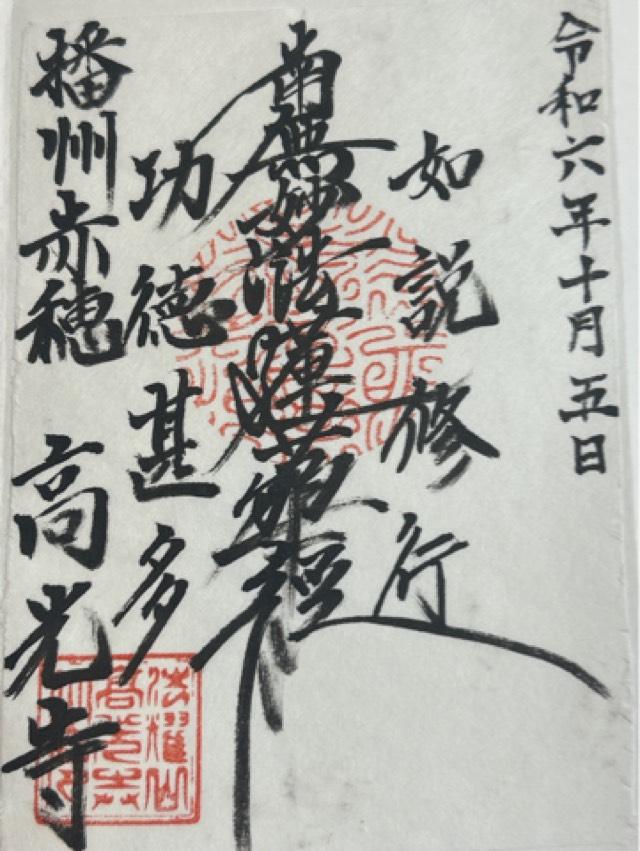 令和六年十月五日
如説修行
南無妙法蓮華経
功徳甚多
播州赤穂 高光寺
法耀山
高光寺